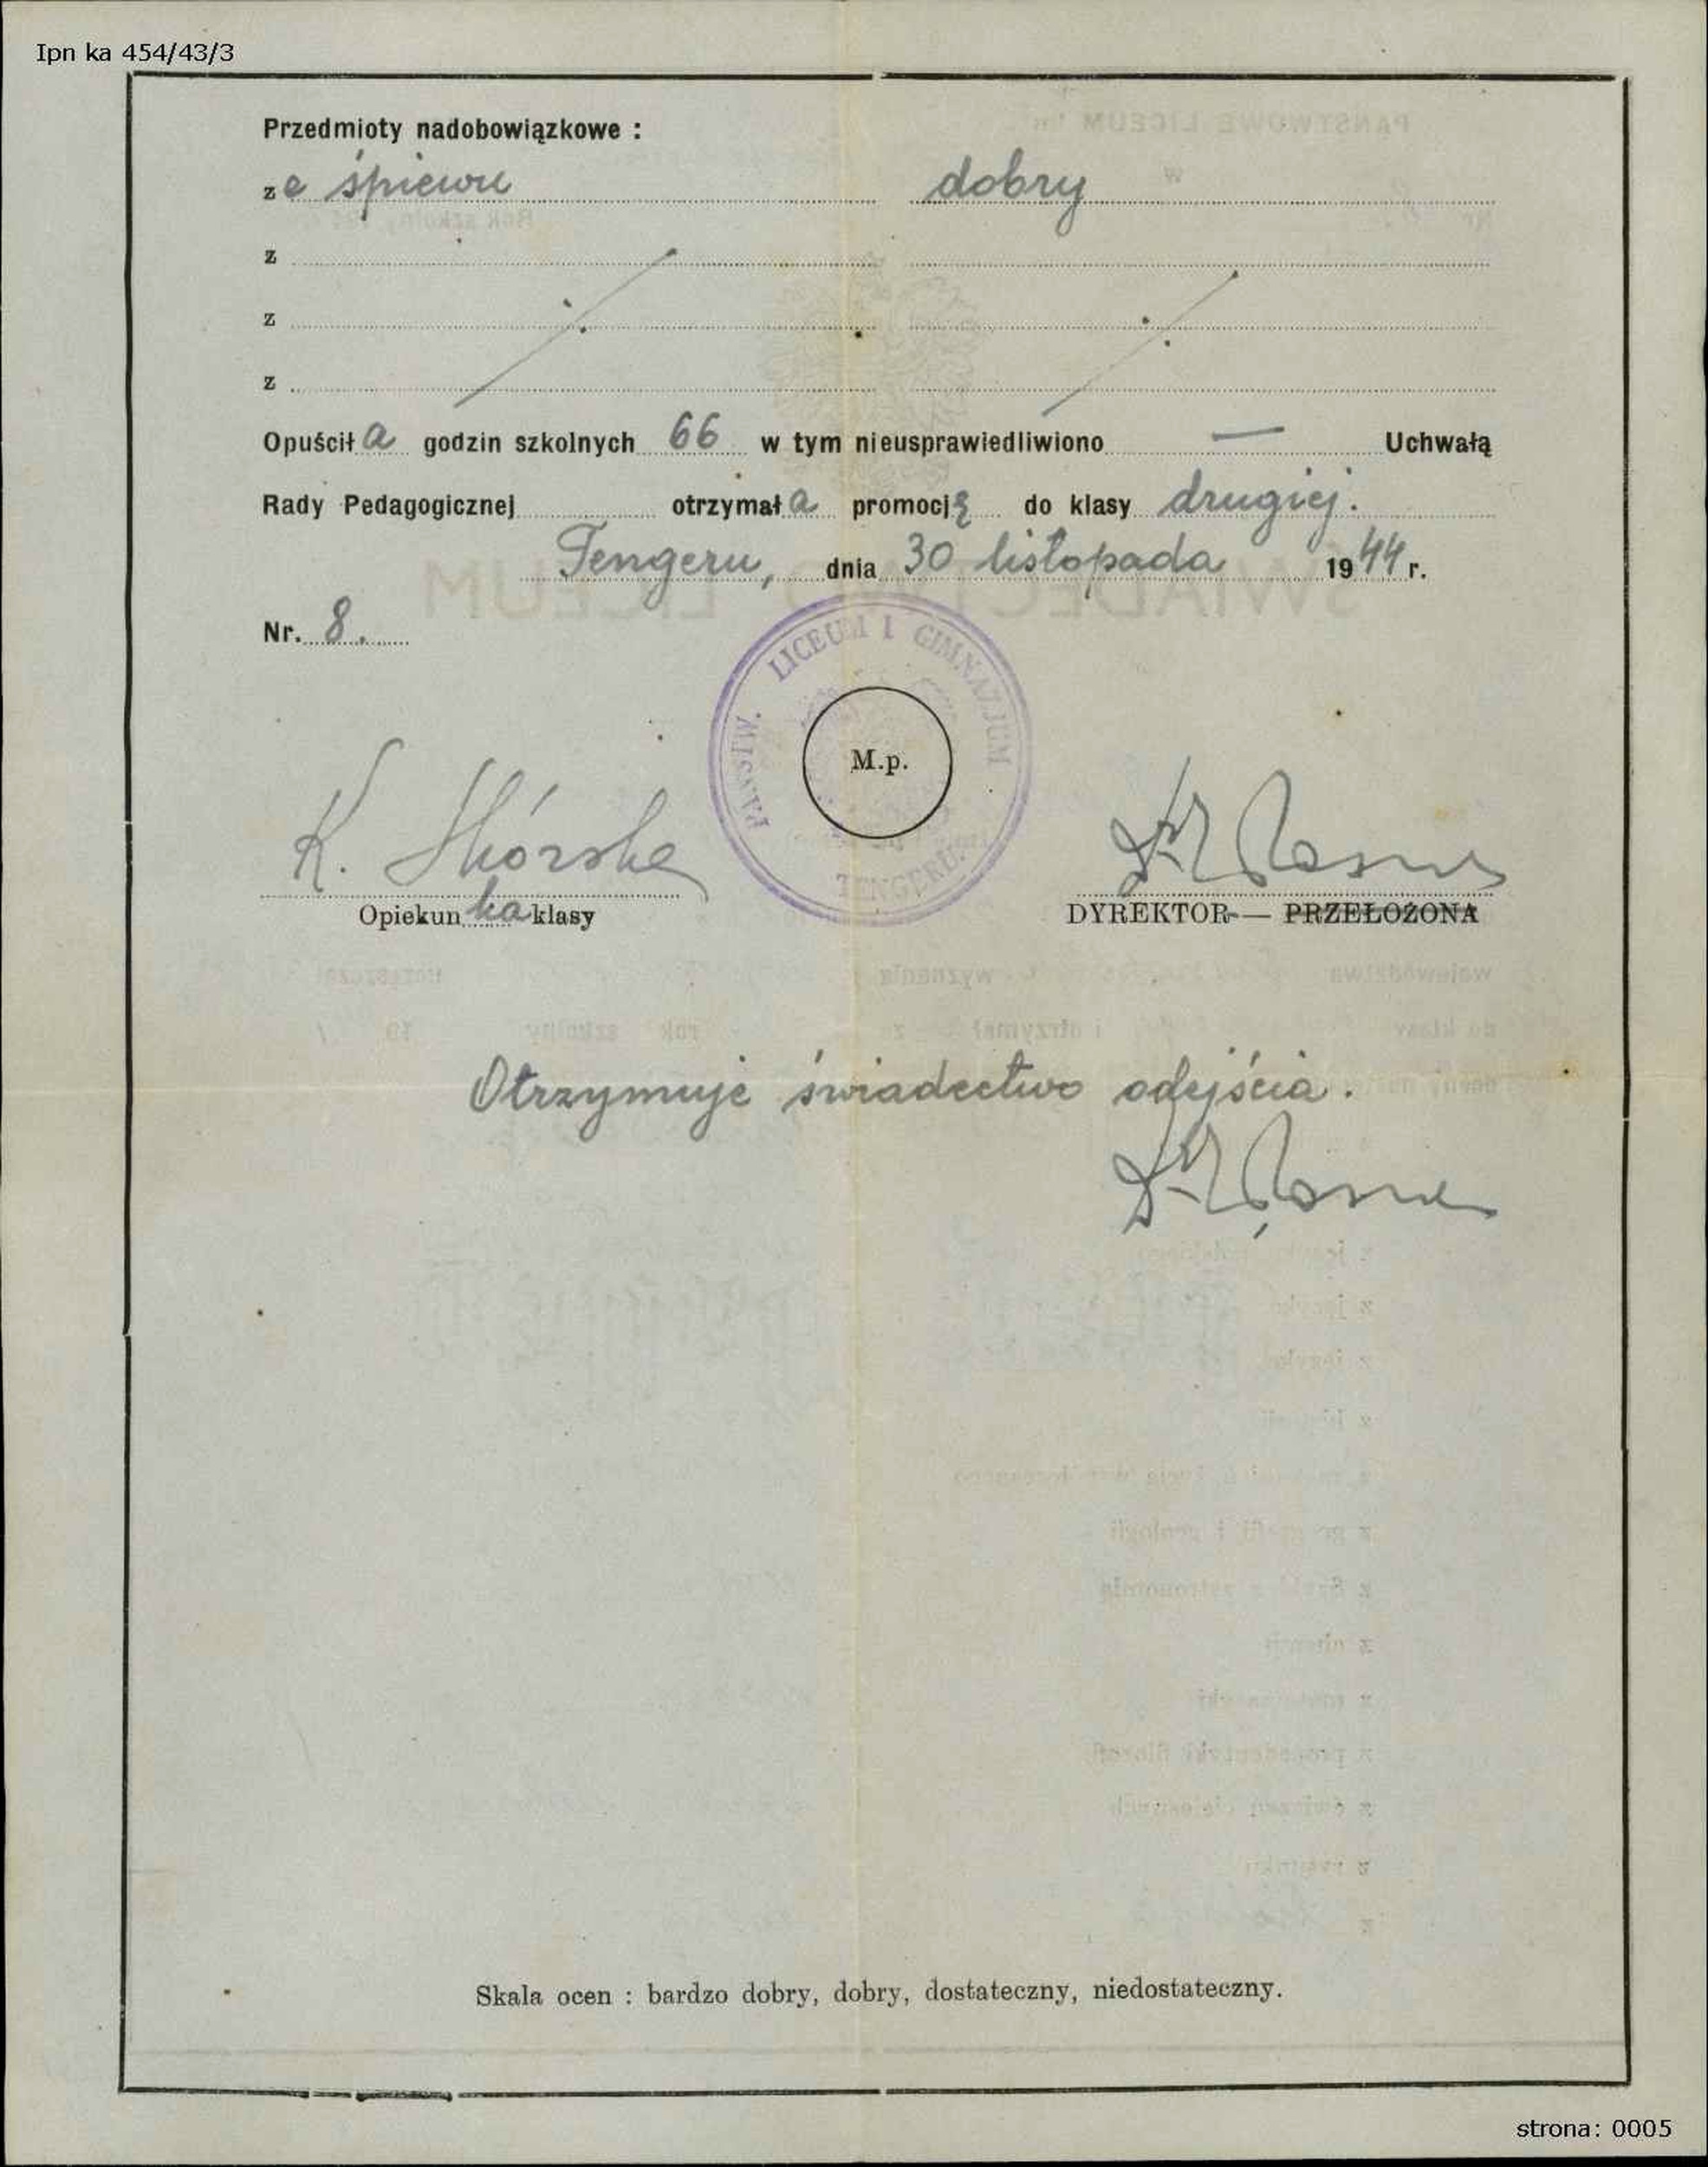 Ipn ka 454/43/3
Przedmioty nadobowiązkowe :
ze śpiewu dobry
z
z
z
Opuściła godzin szkolnych 66 w tym nieusprawiedliwiono — Uchwałą
Rady Pedagogicznej otrzymała promocję do klasy drugiej.
Tengeru, dnia 30 listopada 1944 r.
Nr. 8.
PAŃSTW. LICEUM I GIMNAZJUM
TENGERU
M.p.
K. Skórska
Opiekunka klasy
DYREKTOR — PRZEŁOŻONA
Otrzymuje świadectwo odejścia.
Skala ocen : bardzo dobry, dobry, dostateczny, niedostateczny.
strona: 0005